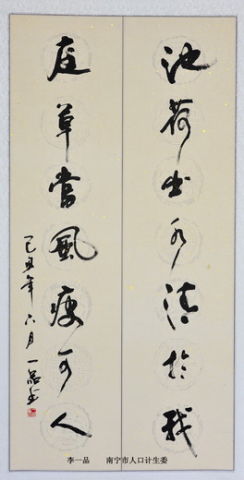 池荷出水清於我
庭草當風瘦可人
己丑年六月一品书
李一品 南宁市人口计生委